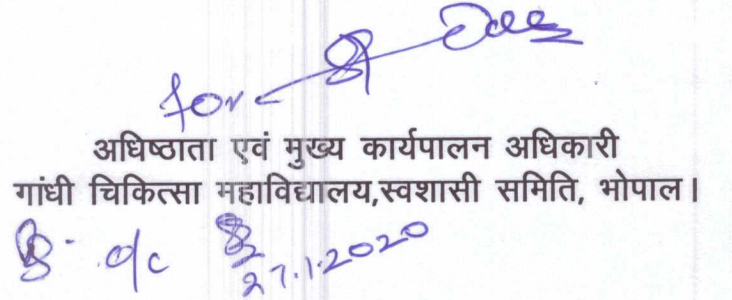 for
अधिष्ठाता एवं मुख्य कार्यपालन अधिकारी
गांधी चिकित्सा महाविद्यालय,स्वशासी समिति, भोपाल।
o/c
27.1.2020